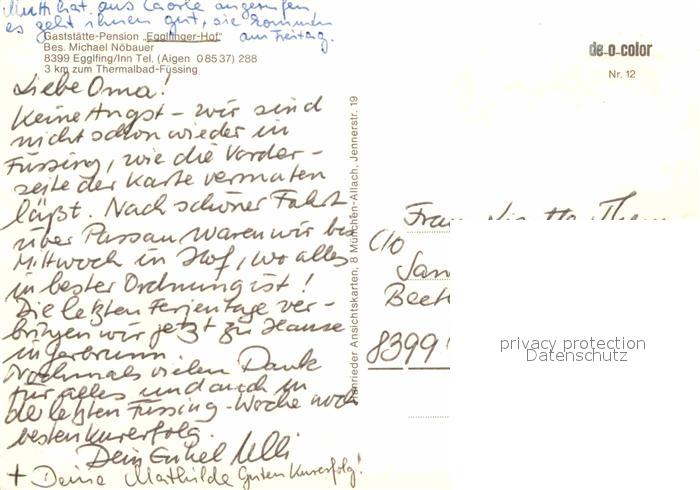 Mutti hat aus Caorle angerufen,
es geht ihnen gut, sie kommen
am Freitag.
Gaststätte-Pension „Egglinger-Hof"
Bes. Michael Nöbauer
8399 Egglfing/Inn Tel. (Aigen 0 85 37) 288
3 km zum Thermalbad-Füssing
Liebe Oma!
Keine Angst – wir sind
nicht schon wieder in
Füssing, wie die Vorder-
seite der Karte vermuten
läßt. Nach schöner Fahrt
über Passau waren wir bis
Mittwoch in Hof, wo alles
in bester Ordnung ist!
Die letzten Ferientage ver-
bringen wir jetzt zu Hause
in Gerbrunn.
Nochmals vielen Dank
für alles und auch in
der letzten Füssing-Woche noch
besten Kurerfolg.
Dein Enkel Ulli
+ Deine Mathilde Guten Kurerfolg!
Hanrieder Ansichtskarten, 8 München-Allach, Jennerstr. 19
de-o-color
Nr. 12
Frau
C/o
San
Beet
8399
privacy protection
Datenschutz